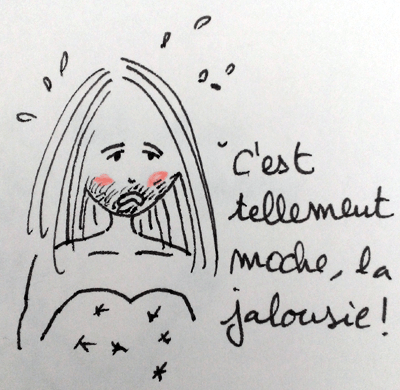 "C'est
tellement
moche, la
jalousie!